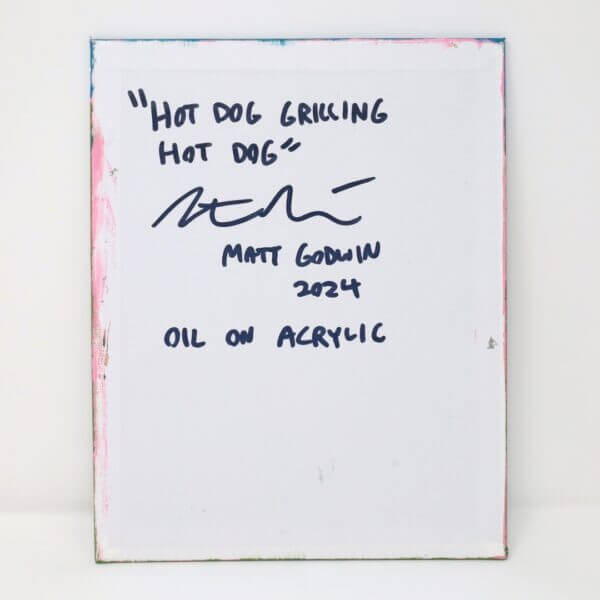 "HOT DOG GRILLING
HOT DOG"
MATT GODWIN
2024
OIL ON ACRYLIC